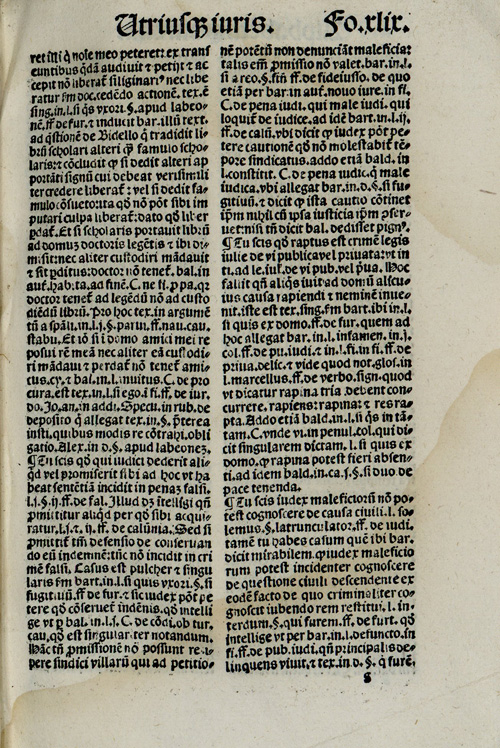 Utriusqꝫ iuris. Fo.xlix.
ret illi q̃ nole meo peteret: ex trans
euntibus qdã audiuit ⁊ petijt ⁊ ac
cepit nõ liberat̃ siliginariꝰ nec libe
ratur fm doc. cedẽdo actionẽ. tex. ẽ
sing. in.l.si qs vxori.§. apud labeo-
nẽ. ff. de fur. ⁊ inducit bar. illũ text.
ad q̃stionẽ de Bidello q̃ tradidit li-
brũ scholari alteri ꝙ famulo scho-
laris: ⁊ cõcludit ꝙ si dedit alteri ap
portãti signũ cui debeat verisimili
ter credere liberat̃: vel si dedit fa-
mulo cõsueto: ita qd nõ põt sibi im
putari culpa liberat̃: dato qd liber
ꝑdat̃. Et si scholaris portauit librũ
ad domũ doctoris legẽtis ⁊ ibi di-
misit: nec aliter custodiri mãdauit
⁊ sit ꝑditus: doctor nõ tenet̃. bal. in
aut̃. hab. ta. ad finẽ. C. ne fi. ꝓ pa. qꝛ
doctor tenet̃ ad legẽdũ nõ ad custo
diẽdũ librũ. Pro hoc tex. in argumẽ
tũ a spãli. in.l.j.§. parui. ff. nau. cau.
stabu. Et iõ si i domo amici mei re
posui rẽ meã nec aliter eã custodi-
ri mãdaui ⁊ perdat̃ nõ tenet̃ ami-
cus. cy. ⁊ bal. in.l. inuitus. C. de pro
cura. est tex. in.l. si ego. ã fi. ff. de iur.
do. Jo. an. in addi. Specu. in rub. de
deposito q̃ allegat tex. in.§. p̃terea
iusti. quibus modis re cõtrahi. obli
gatio. Alex. in d.§. apud labeonez.
¶ Tu scis qd qui iudici dederit ali-
qd vel promiserit sibi ad hoc vt ha
beat sententiã incidit in penaz falsi.
l.j.§.ij. ff. de fal. Illud dꝫ intelligi qñ
ꝓmittitur aliqd per qd sibi acqui-
ratur. l.j. ⁊.ij. ff. de calũnia. Sed si
ꝓmittit̃ tm̃ defensio de conseruan
do eũ indemnẽ: tũc nõ incidit in cri
mẽ falsi. Casus est pulcher ⁊ singu
laris fm bart. in.l. si quis vxori.§. si
fugitiuũ. ff. de fur. ⁊ sic iudex põt pe
tere qd cõseruet̃ indẽnis. qd intelli
ge vt ꝑ bal. in.l.j. C. de cõdi. ob tur.
cau. qd est singulariter notandum.
Hãc tñ ꝓmissionẽ nõ possunt reci-
pere sindici villarũ qui ad petitio-
nẽ potẽtũ non denunciãt maleficia:
talis em̃ ꝓmissio nõ valet. bar. in.l.
si a reo.§. fiñ. ff. de fideiusso. de quo
etiã per bar. in aut. nouo iure. in fi.
C. de pena iudi. qui male iudi. qui
loquit̃ de iudice. ad idẽ bart. in.l.ij.
ff. de calũ. vbi dicit ꝙ iudex põt pe-
tere cautionẽ qd nõ molestabit̃ tẽ-
pore sindicatus. addo etiã bald. in
l. constitit. C. de pena iudic. q̃ male
iudica. vbi allegat bar. in.d.§. si fu-
gitiuũ. ⁊ dicit ꝙ ista cautio cõtinet
ip̃m nihil cũ ipsa iusticia ip̃m ꝓser-
uet: nisi tñ dicit bal. dedisset pignꝰ.
¶ Tu scis qd raptus est crimẽ legis
iulie de vi publica vel priuata: vt in
ti. ad le. iul. de vi pub. vel p̃ua. Hoc
fallit qñ aliqs iuit ad domũ alicu-
ius causa rapiendi ⁊ neminẽ inue-
nit. iste est tex. sing. fm bart. ibi in.l.
si quis ex domo. ff. de fur. quem ad
hoc allegat bar. in.l. infamen. in.j.
col. ff. de pu. iudi. ⁊ in.l. fi. in fi. ff. de
priua. delic. ⁊ vide quod not. glos. in
l. marcellus. ff. de verbo. sign. quod
vt dicatur rapina tria debent con-
currere. rapiens: rapina: ⁊ res ra-
pta. Addo etiã bald. in.l. si q̃s in tã-
tam. C. vnde vi. in penul. col. qui di-
cit singularem dictam. l. si quis ex
domo. ꝙ rapina potest fieri absen-
ti. ad idem bald. in.ca.j.§. si duo de
pace tenenda.
¶ Tu scis iudex maleficiorũ nõ po-
test cognoscere de causa ciuili. l. so-
lemus.§. latrunculator. ff. de iudi.
tamẽ tu habes casum quẽ ibi bar.
dicit mirabilem. ꝙ iudex maleficio
rum potest incidenter cognoscere
de questione ciuili descendente ex
eodẽ facto de quo criminaliter co-
gnoscit iubendo rem restitui. l. in-
terdum.§. qui furem. ff. de furt. qd
intellige vt per bar. in.l. defuncto. in
fi. ff. de pub. iudi. qñ principalis de-
linquens viuit. ⁊ tex. in d.§. q̃ furẽ.
g